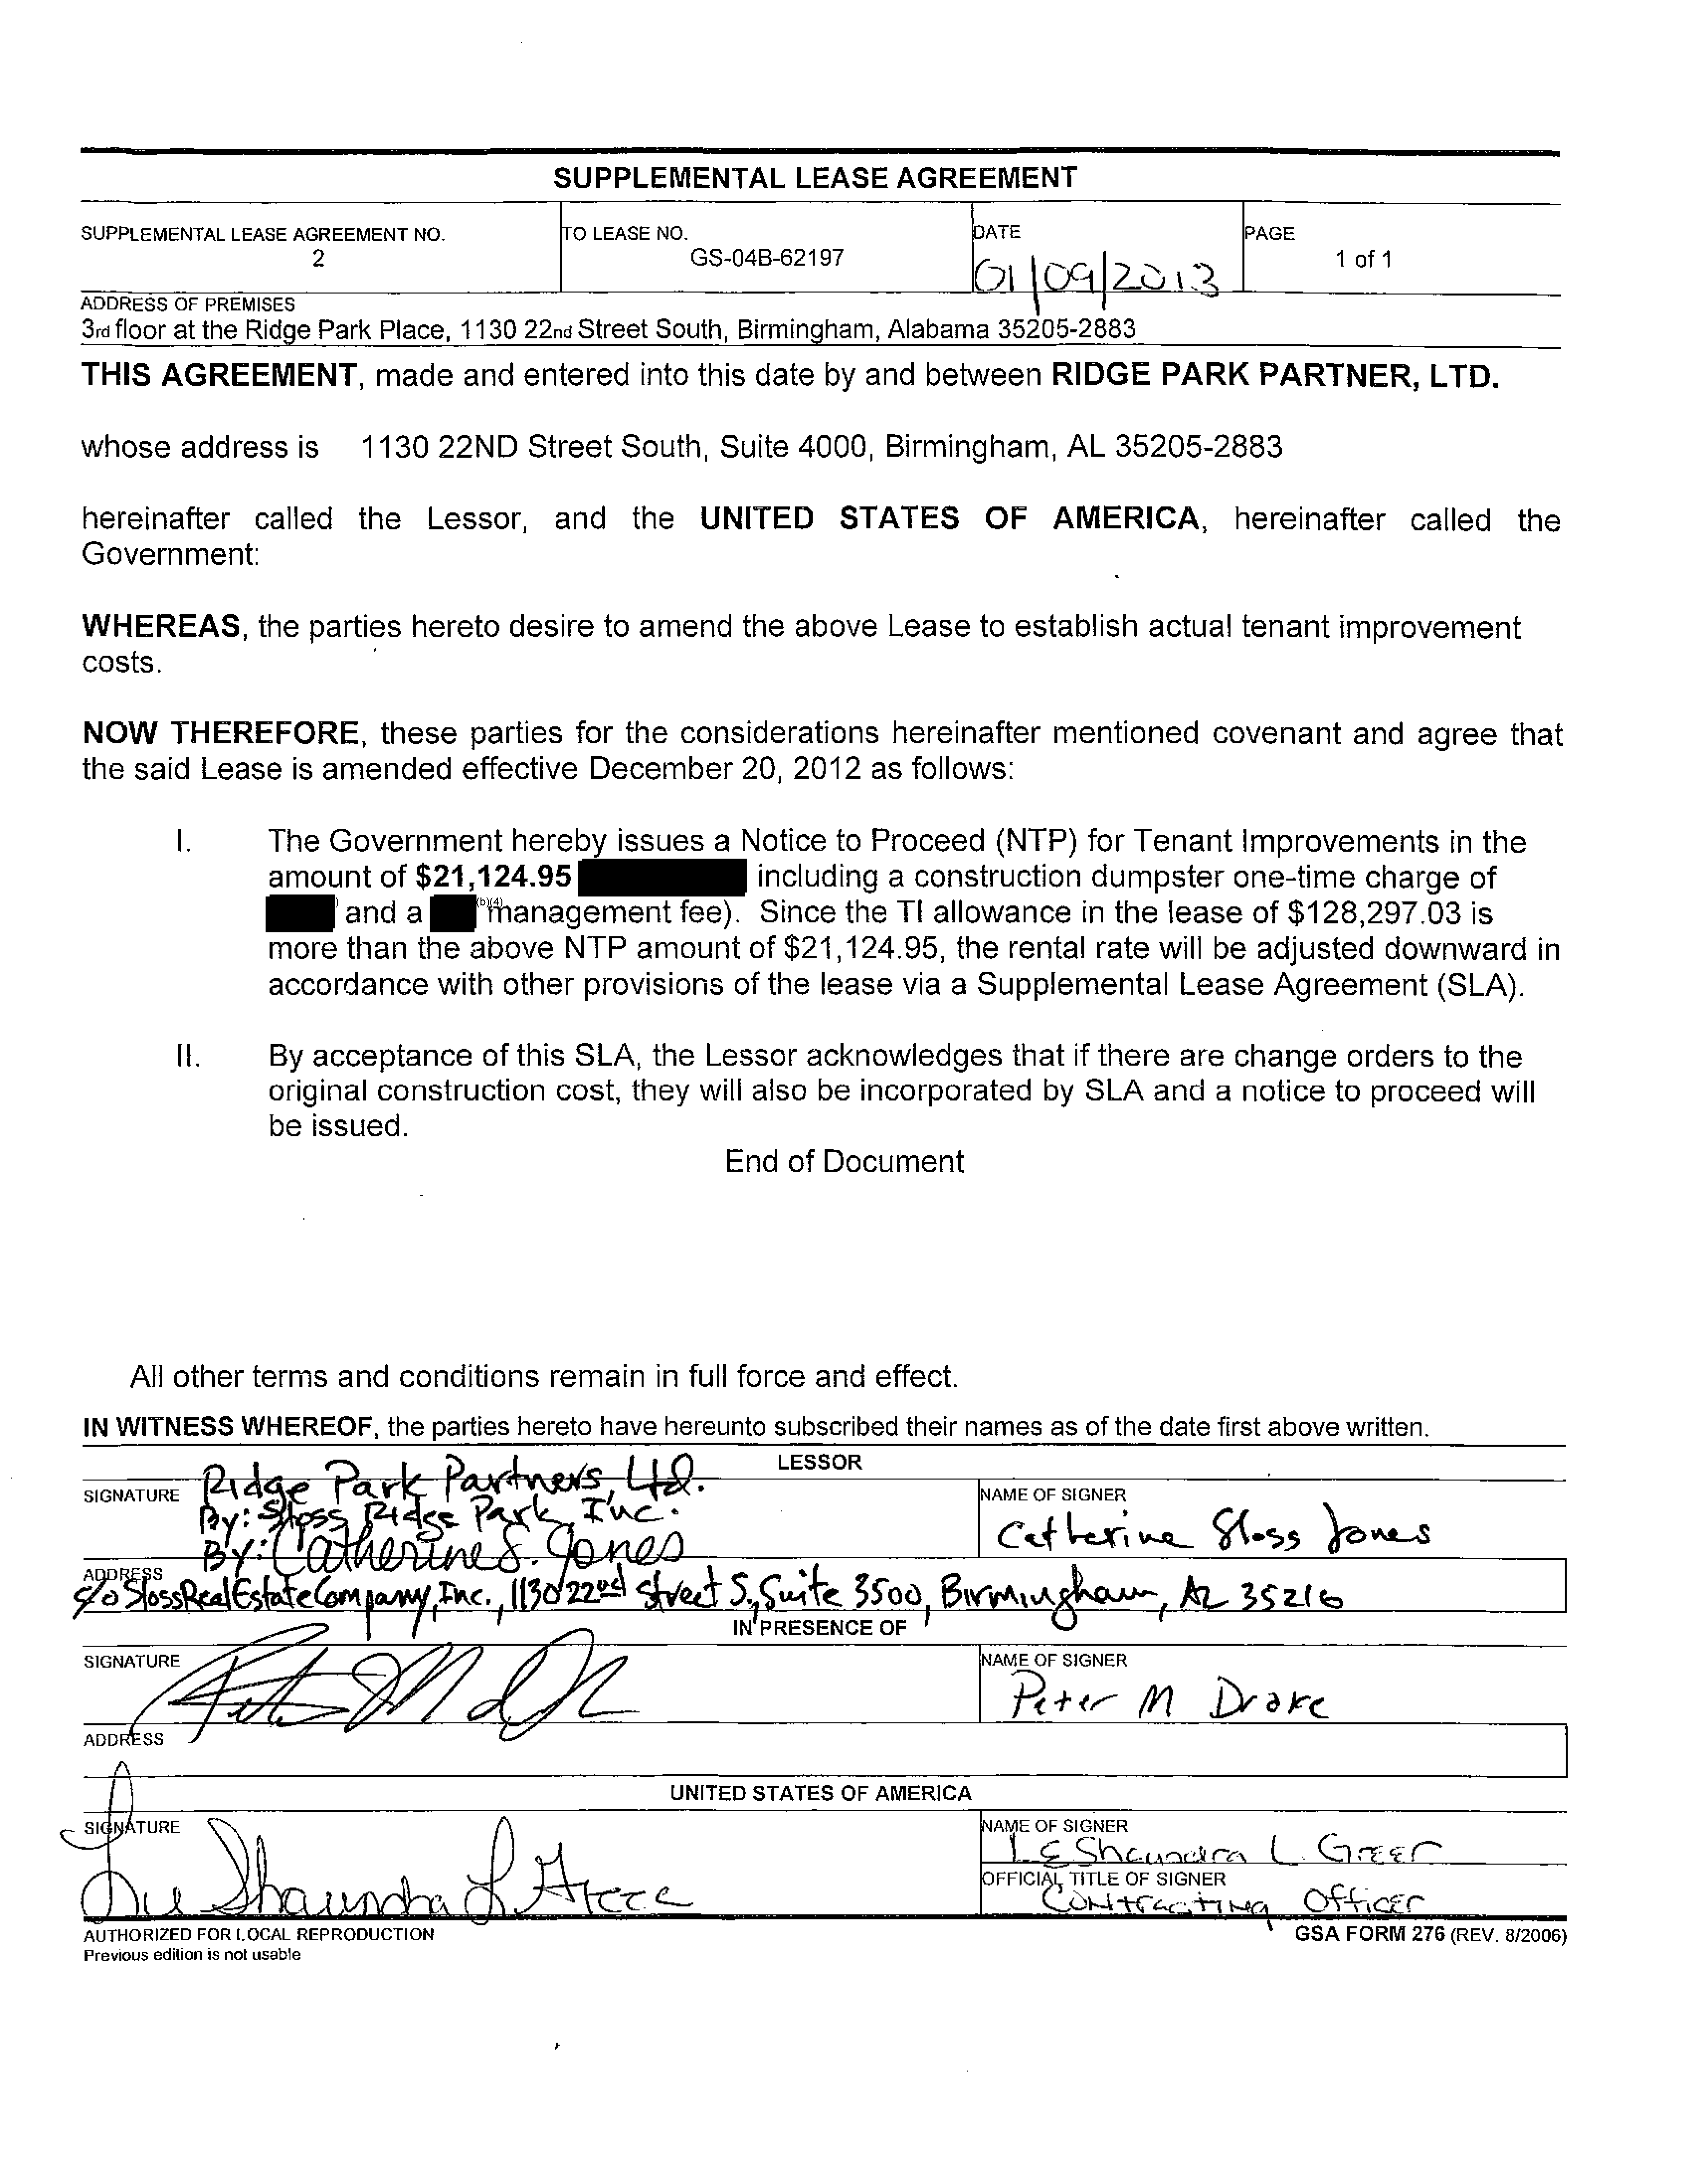 SUPPLEMENTAL LEASE AGREEMENT
SUPPLEMENTAL LEASE AGREEMENT NO.
2
TO LEASE NO.
GS-04B-62197
DATE
01/09/2013
PAGE
1 of 1
ADDRESS OF PREMISES
3rd floor at the Ridge Park Place, 1130 22nd Street South, Birmingham, Alabama 35205-2883
THIS AGREEMENT, made and entered into this date by and between RIDGE PARK PARTNER, LTD.
whose address is 1130 22ND Street South, Suite 4000, Birmingham, AL 35205-2883
hereinafter called the Lessor, and the UNITED STATES OF AMERICA, hereinafter called the
Government:
WHEREAS, the parties hereto desire to amend the above Lease to establish actual tenant improvement
costs.
NOW THEREFORE, these parties for the considerations hereinafter mentioned covenant and agree that
the said Lease is amended effective December 20, 2012 as follows:
I. The Government hereby issues a Notice to Proceed (NTP) for Tenant Improvements in the
amount of $21,124.95 including a construction dumpster one-time charge of
and a (b)(4) management fee). Since the TI allowance in the lease of $128,297.03 is
more than the above NTP amount of $21,124.95, the rental rate will be adjusted downward in
accordance with other provisions of the lease via a Supplemental Lease Agreement (SLA).
II. By acceptance of this SLA, the Lessor acknowledges that if there are change orders to the
original construction cost, they will also be incorporated by SLA and a notice to proceed will
be issued.
End of Document
All other terms and conditions remain in full force and effect.
IN WITNESS WHEREOF, the parties hereto have hereunto subscribed their names as of the date first above written.
LESSOR
SIGNATURE
Ridge Park Partners, Ltd.
By: Sloss Ridge Park, Inc.
By: Catherine S. Jones
NAME OF SIGNER
Catherine Sloss Jones
ADDRESS
c/o Sloss Real Estate Company, Inc., 1130 22nd Street S., Suite 3500, Birmingham, AL 35216
IN PRESENCE OF
SIGNATURE
NAME OF SIGNER
Peter M Drake
ADDRESS
UNITED STATES OF AMERICA
SIGNATURE
NAME OF SIGNER
LeShaundra L. Greer
OFFICIAL TITLE OF SIGNER
Contracting Officer
AUTHORIZED FOR LOCAL REPRODUCTION
Previous edition is not usable
GSA FORM 276 (REV. 8/2006)